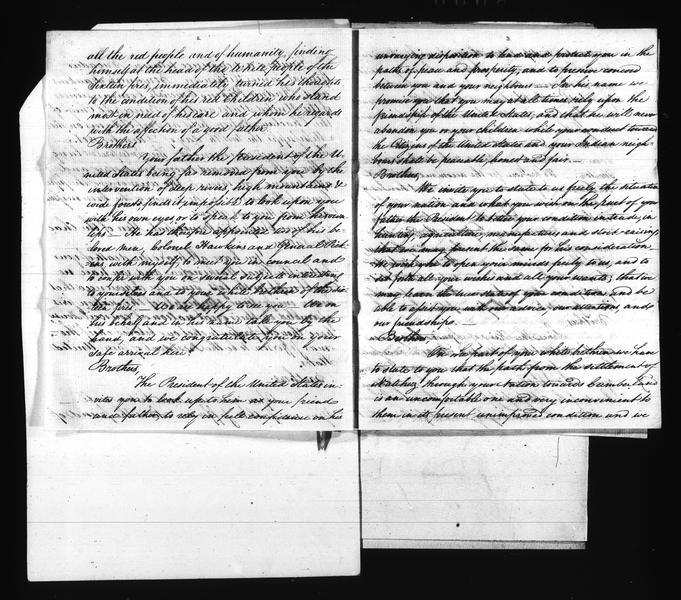 all the red people, and of humanity, finding
himself at the head of the white people of the
sixteen fires, immediately turned his thoughts
to the condition of his red Children who stand
most in need of his care and whom he regards
with the affection of a good father.
Brothers
Your father the President of the Uni-
ted States being far removed from you by the
intervention of deep rivers high mountains &
wide forests finds it impossible to look upon you
with his own eyes or to speak to you from his own
lips — He has therefore appointed two of his be-
loved men, Colonel Hawkins and General Pick-
ens with myself to meet you in council and
to confer with you on several subjects interesting
to yourselves and to your white brethren of the six-
teen fires. We are happy to see you We on
his behalf and in his name take you by the
hand, and we congratulate you on your
safe arrival here.
Brothers,
The President of the United States in-
vites you to look up to him as your friend
and father, to rely in full confidence on his
2
unvarying disposition to lead and protect you in the
paths of peace and prosperity, and to preserve concord
between you and your neighbours — In his name we
promise you that you may at all times rely upon the
friendship of the United States, and that he will never
abandon you or your children while your conduct towards
the Citizens of the United States and your Indian neigh-
bours shall be peaceable honest and fair. —
Brothers,
We invite you to state to us freely the situation
of your nation and what you wish on the part of your
father the President to better your condition in trade, in
hunting, agriculture, manufactures and stock-raising,
that we may present the same to his consideration
We wish you to open your minds freely to us, and to
set forth all your wishes and all your wants; that we
may learn the true state of your condition and be
able to assist you with our advice, our attentions, and
our friendships. —
Brothers
On the part of your white brethren we have
to state to you that the path from the settlement of
Natchez through your nation towards Cumberland
is an uncomfortable one and very inconvenient to
them in its present unimproved condition and we